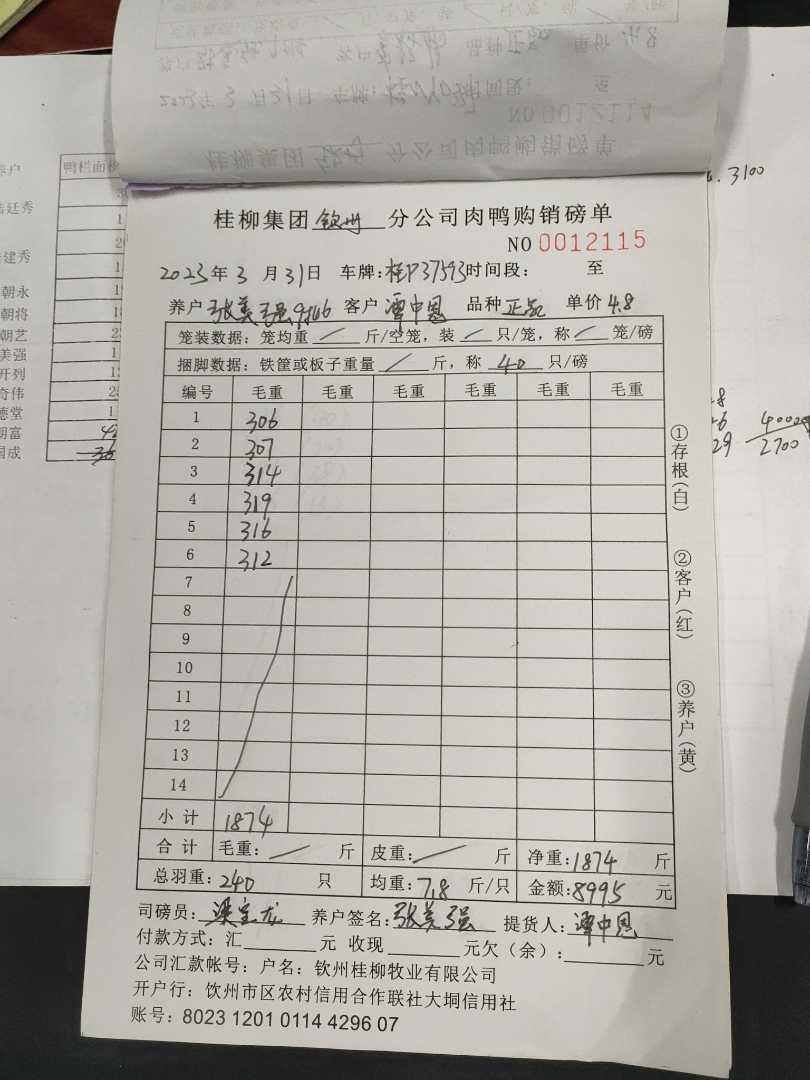 鸭栏面积
养户
建秀
朝永
朝将
朝艺
美强
开列
奇伟
德堂
朝富
国成
3100
桂柳集团钦州分公司肉鸭购销磅单
NO 0012115
2023年3月31日 车牌:桂P37593时间段: 至
养户张美强9546 客户谭中恩 品种正品 单价4.8
笼装数据:笼均重／斤/空笼,装／只/笼,称／笼/磅
捆脚数据:铁筐或板子重量／斤,称40只/磅
编号 毛重 毛重 毛重 毛重 毛重 毛重
1 306
2 307
3 314
4 319
5 316
6 312
7
8
9
10
11
12
13
14
小计 1874
合计 毛重:／斤 皮重:／斤 净重:1874斤
总羽重:240只 均重:7.8斤/只 金额:8995元
司磅员:梁宝龙 养户签名:张美强 提货人:谭中恩
付款方式:汇 元 收现 元欠(余): 元
公司汇款帐号:户名:钦州桂柳牧业有限公司
开户行:饮州市区农村信用合作联社大垌信用社
账号:8023 1201 0114 4296 07
①存根(白)
②客户(红)
③养户(黄)
29
2700